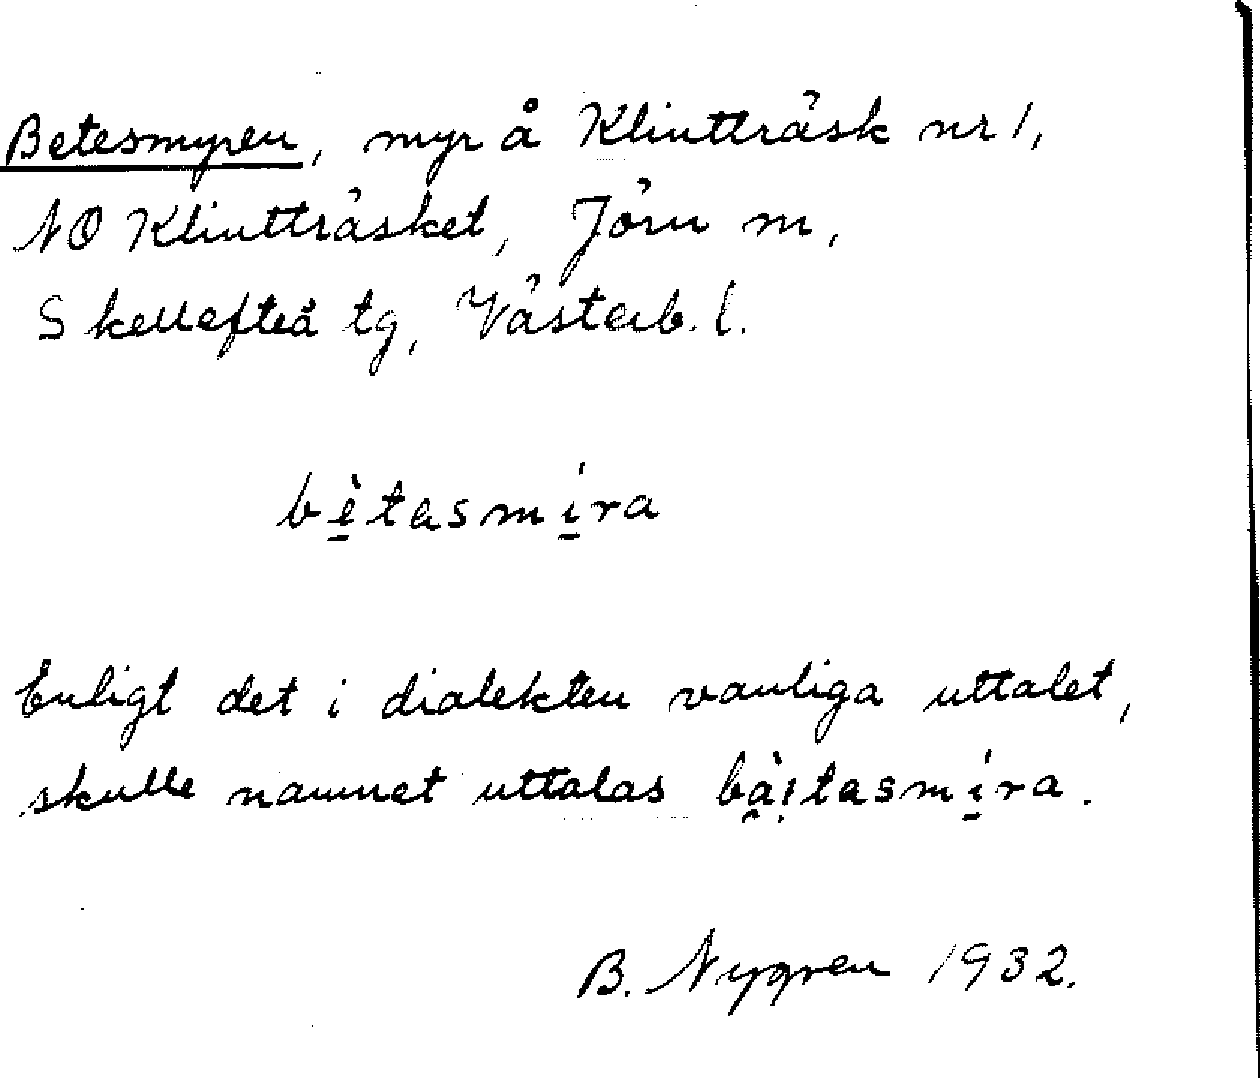 Betesmyren, myr å Klintträsk nr 1,
NO Klintträsket, Jörn sn,
Skellefteå tg, Västerb. l.
bè̱tasmí̱ra
Enligt det i dialekten vanliga uttalet,
skulle namnet uttalas bài̯tasmí̱ra.
B. Nygren 1932.